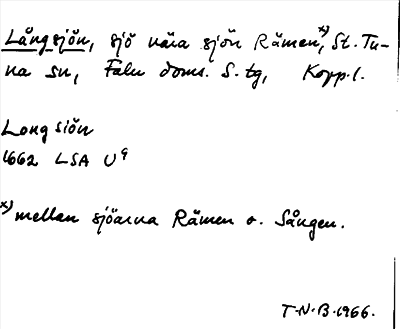 Långsjön, sjö nära sjön Rämen,x) St. Tu-
na sn, Falu doms. S. tg, Kopp. l.
Long siön
1662 LSA U9
x) mellan sjöarna Rämen o. Sången.
T.N.B.1966.